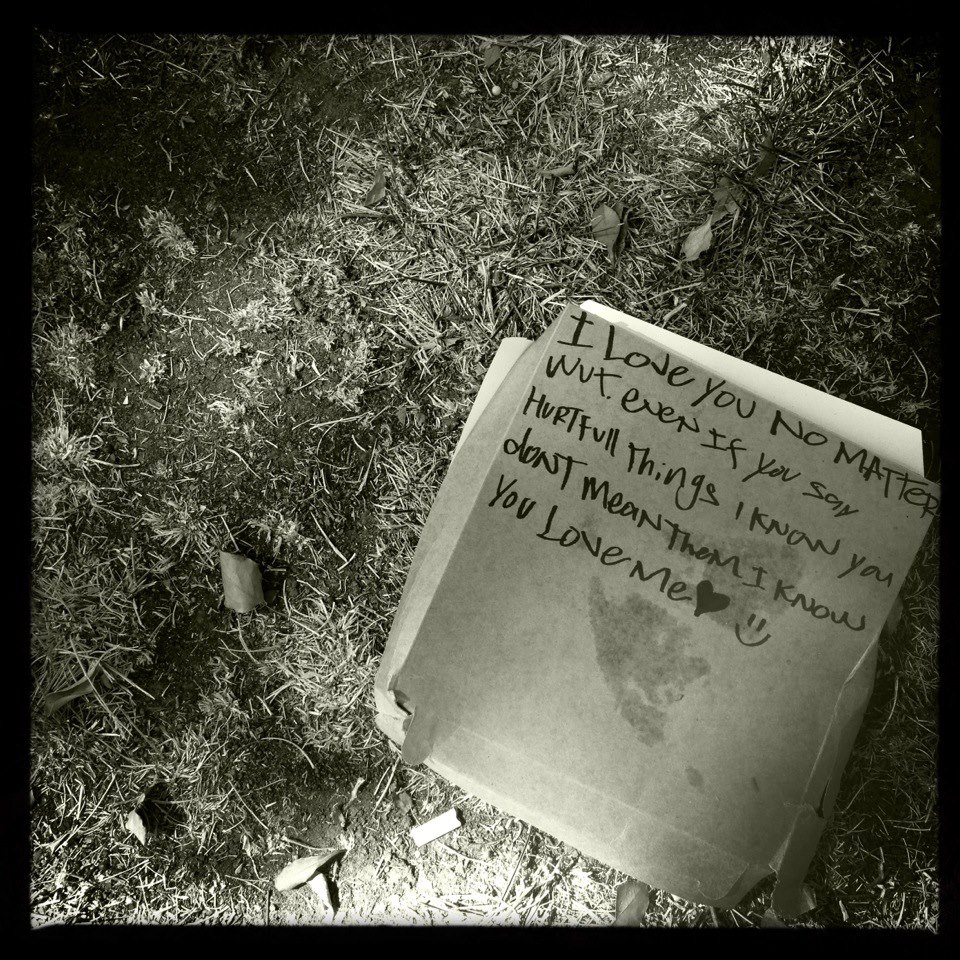 I Love you No MATTER
Wut. even If you say
HURTFull Things I KNOW you
dONT MEAN Them I KNOW
You Love Me ♥ :)